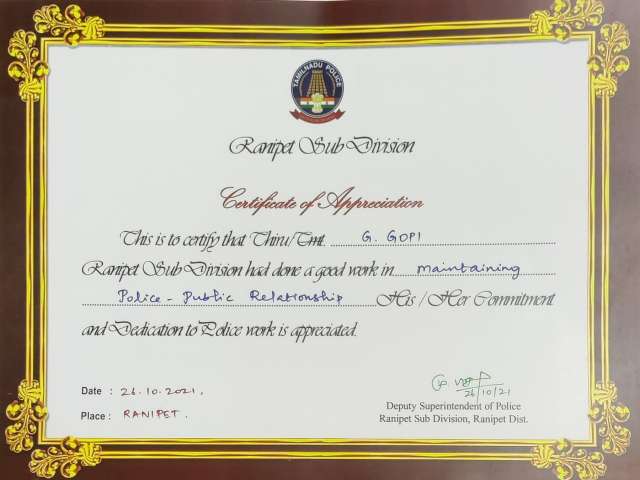 TAMILNADU POLICE
Ranipet Sub Division
Certificate of Appreciation
This is to certify that Thiru/Tmt. G. GOPI
Ranipet Sub Division had done a good work in maintaining
Police - Public Relationship His / Her Commitment
and Dedication to Police work is appreciated.
Date : 26.10.2021.
26/10/21
Place : RANIPET.
Deputy Superintendent of Police
Ranipet Sub Division, Ranipet Dist.